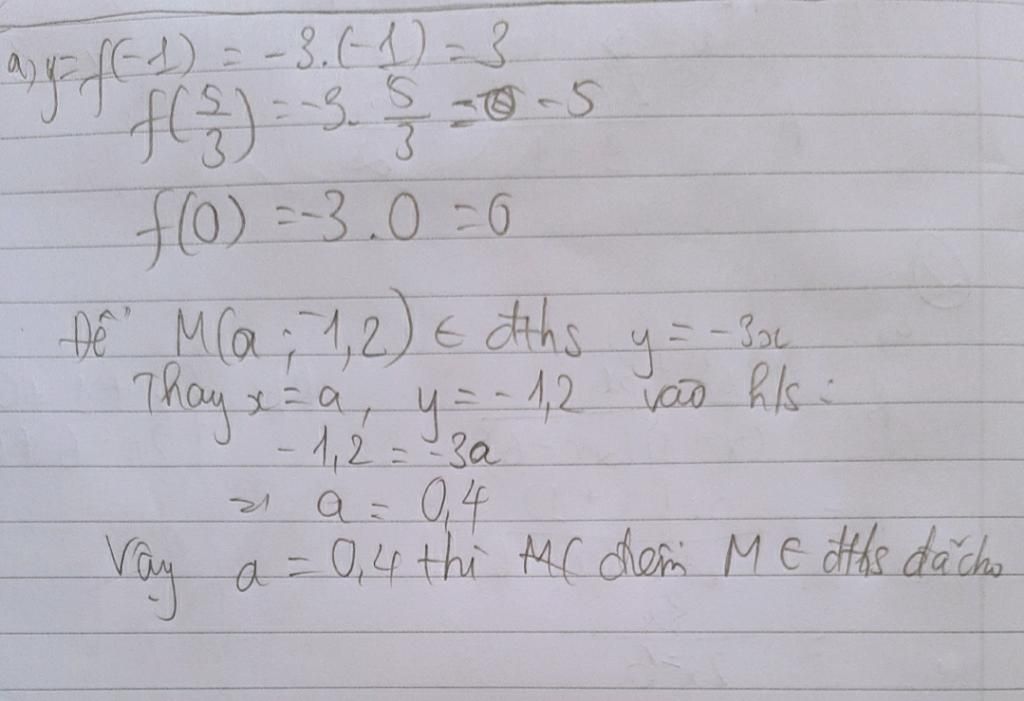 a) y = f(-1) = -3.(-1) = 3
f(5/3) = -3. 5/3 = -5
f(0) = -3.0 = 0
Để M(a; -1,2) ∈ đths y = -3x
Thay x = a, y = -1,2 vào h/s:
-1,2 = -3a
=> a = 0,4
Vậy a = 0,4 thì điểm M ∈ đths đã cho